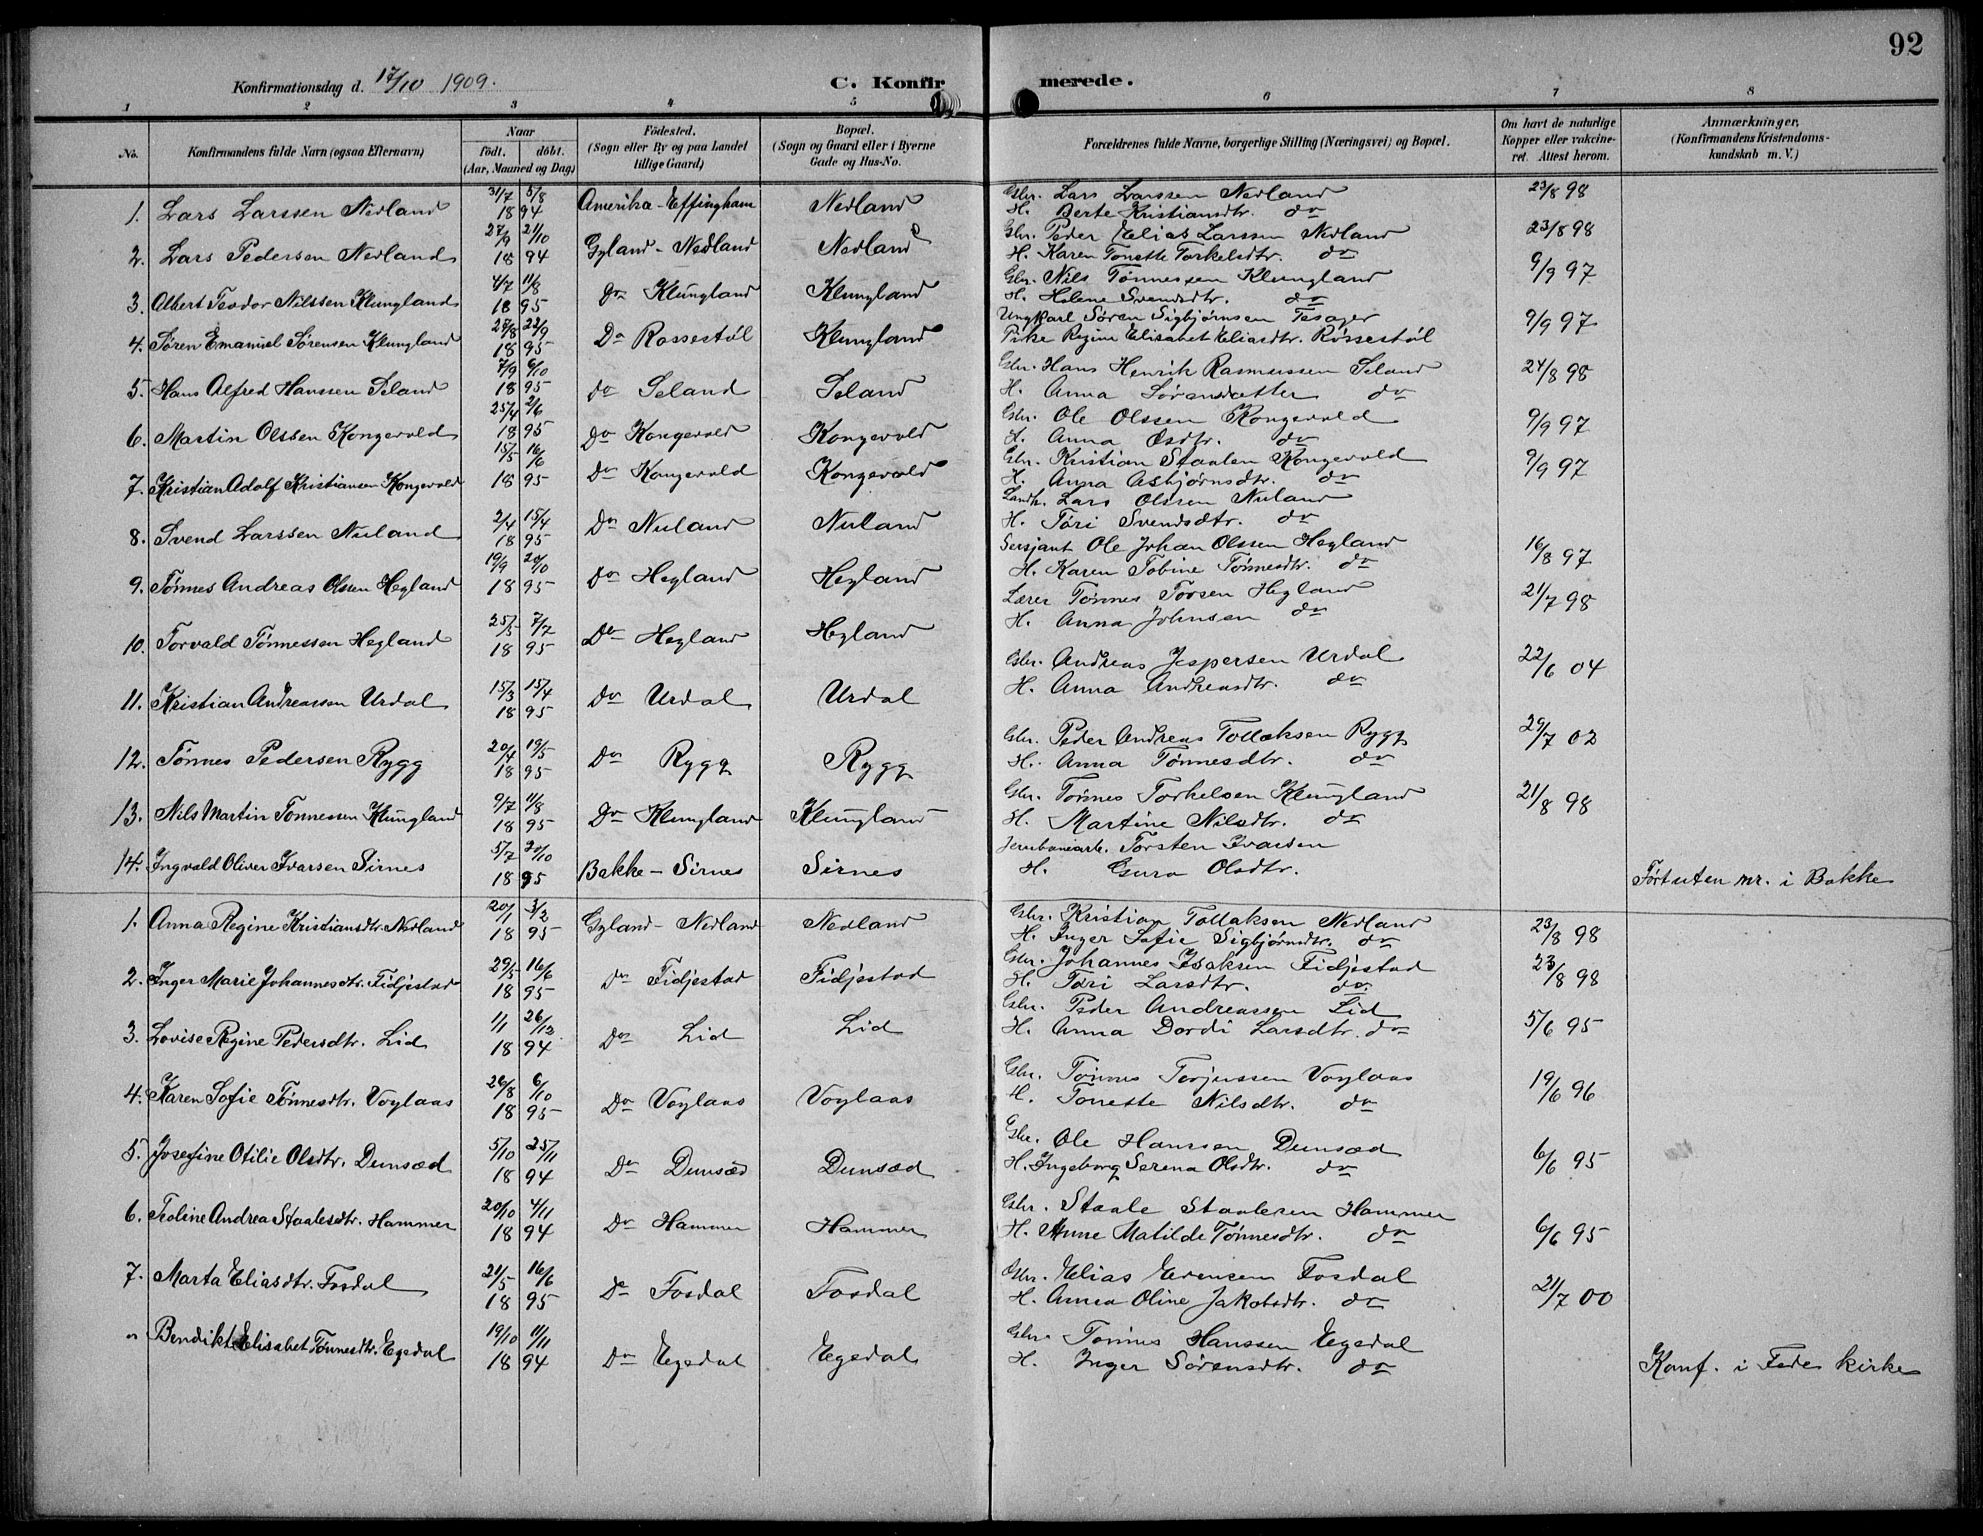 92
Konfirmationsdag d. 17/10 1909. C. Konfirmerede.
1 2 3 4 5 6 7 8
No. Konfirmandens fulde Navn (ogsaa Efternavn) Naar født. døbt. (Aar, Maaned og Dag) Fødested. (Sogn eller By og paa Landet tillige Gaard) Bopæl. (Sogn og Gaard eller i Byerne Gade og Hus-No. Forældrenes fulde Navne, borgerlige Stilling (Næringsvei) og Bopæl. Om havt de naturlige Kopper eller vakcineret. Attest herom. Anmærkninger, (Konfirmandens Kristendomskundskab m. V.)
1. Lars Larssen Nedland 31/7 5/8 1894 Amerika - Effingham Nedland Gbr. Lars Larssen Nedland 23/8 98
H. Berte Kristiansdtr. do
2. Lars Pedersen Nedland 27/9 21/10 1894 Gyland - Nedland Nedland Gbr. Peder Elias Larssen Nedland 23/8 98
H. Karen Tonette Torkelsdtr. do
3. Albert Teodor Nilssen Klungland 4/7 11/8 1895 Do Klungland Klungland Gbr. Nils Tønnessen Klungland 9/9 97
H. Helene Svendsdtr. do
4. Søren Emanuel Sørensen Klungland 27/8 22/9 1895 Do Rossestøl Klungland Ungkarl Søren Sigbjørnsen Tesager 9/9 97
Pike Regine Elisabet Eliasdtr. Røssestøl
5. Hans Alfred Hanssen Seland 7/9 6/10 1895 do Seland Seland Gbr. Hans Henrik Rasmussen Seland 24/8 98
H. Anna Sørensdatter do
6. Martin Olssen Kongevold 25/4 2/6 1895 Do Kongevold Kongevold Gbr. Ole Olssen Kongevold 9/9 97
H. Anna Osdtr. do
7. Kristian Adolf Kristiansen Kongevold 15/5 16/6 1895 Do Kongevold Kongevold Gbr. Kristian Staalen Kongevold 9/9 97
H. Anna Asbjørnsdtr. do
8. Svend Larssen Nuland 2/4 15/4 1895 Do Nuland Nuland Landh. Lars Olssen Nuland
H. Tøri Svendsdtr. do
9. Tønnes Andreas Olssen Hegland 19/9 20/10 1895 Do Hegland Hegland Sersjant Ole Johan Olssen Hegland 16/8 97
H. Karen Tobine Tønnesdtr. do
10. Torvald Tønnessen Hegland 25/5 7/7 1895 Do Hegland Hegland Lærer Tønnes Torsen Hegland 21/7 98
H. Anna Johnsen do
11. Kristian Andreassen Urdal 15/3 15/4 1895 Do Urdal Urdal Gbr. Andreas Jespersen Urdal 22/6 04
H. Anna Andreasdtr. do
12. Tønnes Pedersen Rygg 20/4 19/5 1895 Do Rygg Rygg Gbr. Peder Andreas Tollaksen Rygg 29/7 02
H. Anna Tønnesdtr. do
13. Nils Martin Tønnessen Klungland 9/7 11/8 1895 Do Klungland Klungland Gbr. Tønnes Torkelsen Klungland 21/8 98
H. Martine Nilsdtr. do
14. Ingvald Oliver Ivarsen Sirnes 5/7 20/10 1895 Bakke - Sirnes Sirnes Jernbanearb. Torsten Ivarsen
H. Guro Olsdtr. Ført uten nr. i Bakke
1. Anna Regine Kristiansdtr. Nedland 20/1 3/2 1895 Gyland - Nedland Nedland Gbr. Kristian Tollaksen Nedland 23/8 98
H. Inger Sofie Sigbjørnsdtr. do
2. Inger Marie Johannesdtr. Fidjestad 29/5 16/6 1895 Do Fidjestad Fidjestad Gbr. Johannes Isaksen Fidjestad 23/8 98
H. Tøri Larsdtr. do.
3. Lovise Regine Pedersdtr. Lid 1/1 26/12 1894 Do Lid Lid Gbr. Peder Andreassen Lid 5/6 95
H. Anna Dordi Larsdtr. do
4. Karen Sofie Tønnesdtr. Voglaas 26/8 6/10 1895 Do Voglaas Voglaas Gbr. Tønnes Terjussen Voglaas 19/6 96
H. Tonette Nilsdtr. do
5. Josefine Otilie Olsdtr. Dunsæd 5/10 25/11 1894 Do Dunsæd Dunsæd Gbr. Ole Hanssen Dunsæd 6/6 95
H. Ingeborg Serena Olsdtr. do
6. Teoline Andrea Staalesdtr. Hammer 20/10 4/11 1894 Do Hammer Hammer Gbr. Staale Staalesen Hammer 6/6 95
H. Anne Matilde Tønnesdtr. do
7. Marta Eliasdtr. Fosdal 21/5 16/6 1895 Do Fosdal Fosdal Gbr. Elias Evensen Fosdal 21/7 00
H. Anna Oline Jakobsdtr. do
" Bendikte Elisabet Tønnesdtr. Egedal 19/10 11/11 1894 Do Egedal Egedal Gbr. Tønnes Hanssen Egedal
H. Inger Sørensdtr. do Konf. i Fede kirke